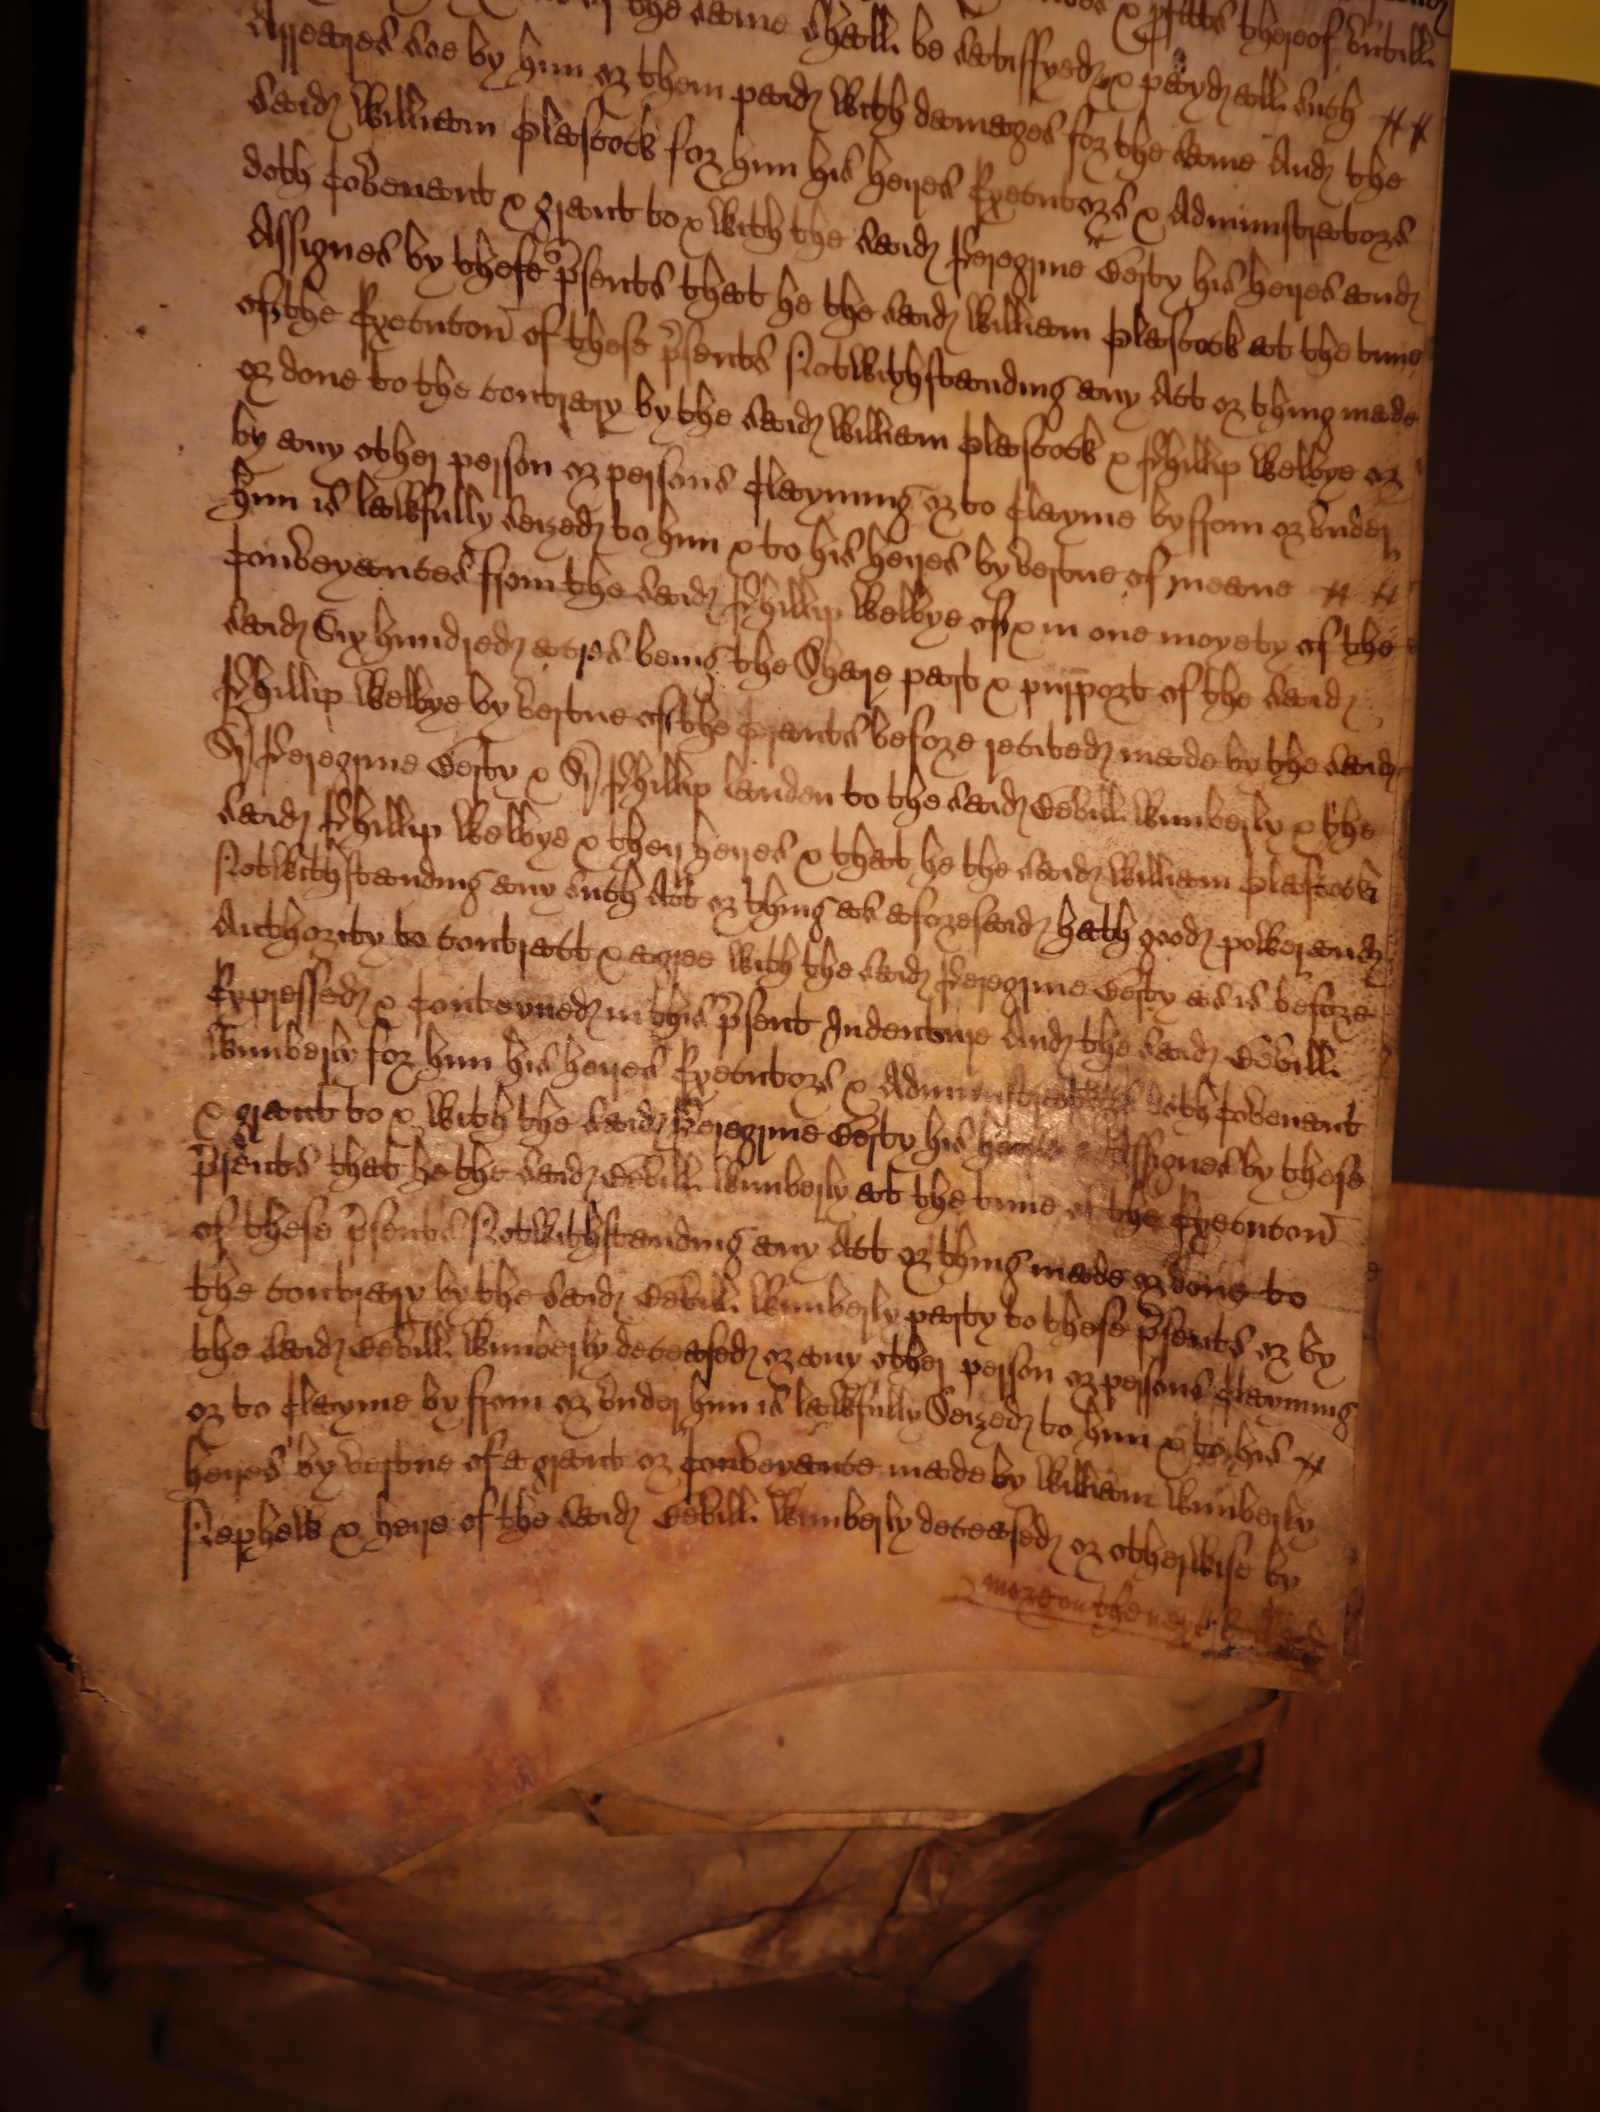 the same shalbe satisfyed & payd & all such
Arreares soe by him or them paid with damages for the same And the
said William Plascock for him his heyres Executors & Administrators
doth Covenant & grant to & with the said Peregrine Berty his heyres and
Assignes by these p'sents that he the said William Plascock at the time
of the Executon of these p'sents Notwithstanding any Act or thing made
or done to the contrary by the said William Plascock & Phillip Welbye or
by any other person or persons Clayming or to Clayme by from or under
him is lawfully seized to him & to his heyres by vertue of meane
Conveyances from the said Phillip Welbye of & in one moyety of the
said Six hundred acres being the Share part & purport of the said
Phillip Welbye by vertue of the grants before recited made by the said
Sr Peregrine Berty & Sr Phillip Landen to the said Bevill Wimberly & the
said Phillip Welbye & their heyres & that he the said William Plascock
Notwithstanding any such Act or thing as aforesaid hath good power and
Authority to contract & agree with the said Peregrine Berty as is before
Expressed & Conteyned in this p'sent Indenture And the said Bevill
Wimberly for him his heyres Executors & Administrators doth Covenant
& grant to & with the said Peregrine Berty his heyres & Assignes by these
p'sents that he the said Bevill Wimberly at the time of the Executon
of these p'sents Notwithstanding any Act or thing made or done to
the contrary by the said Bevill Wimberly party to these p'sents or by
the said Bevill Wimberly deceased or any other person or persons Clayming
or to Clayme by from or under him is lawfully Seized to him & to his
heyres by vertue of a grant or Conveyance made by William Wimberly
Nephew & heyre of the said Bevill Wimberly deceased or otherwise by
more on the next